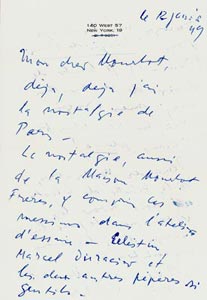 140 WEST 57
NEW YORK, 19
le 12
49
Mon cher Mourlot,
déjà, déjà j'ai
la nostalgie de
Paris —
La nostalgie, aussi
de la Maison Mourlot
Frères, y compris ces
messieurs dans l'atelier
d'essais — Célestin
Marcel
et
les deux autres pépères si
gentils —